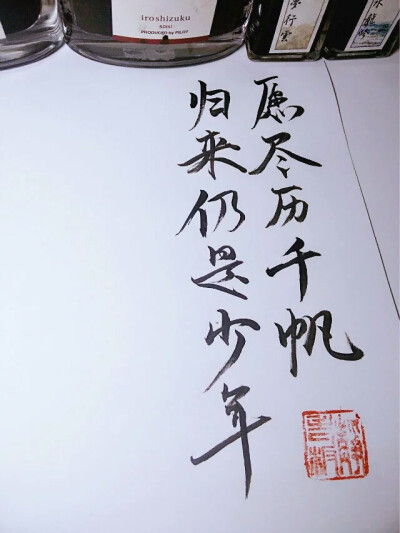 iroshizuku
PRODUCED by PILOT
夢行雲
水龍吟
愿尽历千帆
归来仍是少年